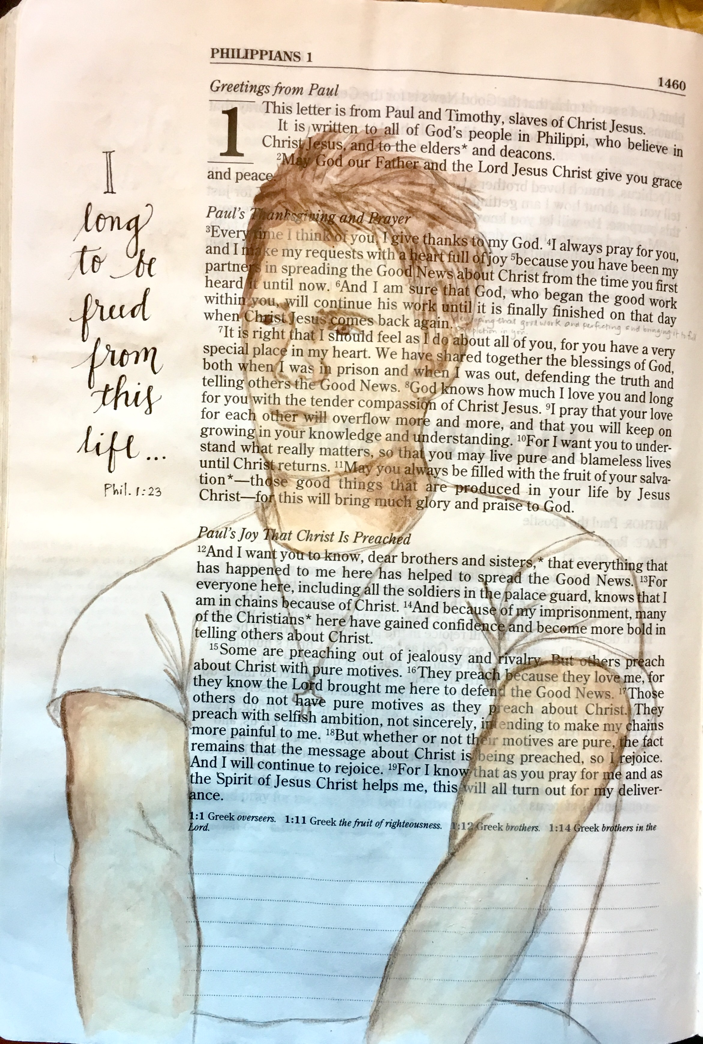 PHILIPPIANS 1
1460
Greetings from Paul
1 This letter is from Paul and Timothy, slaves of Christ Jesus.
It is written to all of God's people in Philippi, who believe in
Christ Jesus, and to the elders* and deacons.
²May God our Father and the Lord Jesus Christ give you grace
and peace.
Paul's Thanksgiving and Prayer
³Every time I think of you, I give thanks to my God. ⁴I always pray for you,
and I make my requests with a heart full of joy ⁵because you have been my
partners in spreading the Good News about Christ from the time you first
heard it until now. ⁶And I am sure that God, who began the good work
within you, will continue his work until it is finally finished on that day
when Christ Jesus comes back again.
⁷It is right that I should feel as I do about all of you, for you have a very
special place in my heart. We have shared together the blessings of God,
both when I was in prison and when I was out, defending the truth and
telling others the Good News. ⁸God knows how much I love you and long
for you with the tender compassion of Christ Jesus. ⁹I pray that your love
for each other will overflow more and more, and that you will keep on
growing in your knowledge and understanding. ¹⁰For I want you to under-
stand what really matters, so that you may live pure and blameless lives
until Christ returns. ¹¹May you always be filled with the fruit of your salva-
tion*—those good things that are produced in your life by Jesus
Christ—for this will bring much glory and praise to God.
Paul's Joy That Christ Is Preached
¹²And I want you to know, dear brothers and sisters,* that everything that
has happened to me here has helped to spread the Good News. ¹³For
everyone here, including all the soldiers in the palace guard, knows that I
am in chains because of Christ. ¹⁴And because of my imprisonment, many
of the Christians* here have gained confidence and become more bold in
telling others about Christ.
¹⁵Some are preaching out of jealousy and rivalry. But others preach
about Christ with pure motives. ¹⁶They preach because they love me, for
they know the Lord brought me here to defend the Good News. ¹⁷Those
others do not have pure motives as they preach about Christ. They
preach with selfish ambition, not sincerely, intending to make my chains
more painful to me. ¹⁸But whether or not their motives are pure, the fact
remains that the message about Christ is being preached, so I rejoice.
And I will continue to rejoice. ¹⁹For I know that as you pray for me and as
the Spirit of Jesus Christ helps me, this will all turn out for my deliver-
ance.
1:1 Greek overseers. 1:11 Greek the fruit of righteousness. 1:12 Greek brothers. 1:14 Greek brothers in the
Lord.
I
long
to be
freed
from
this
life...
Phil. 1:23